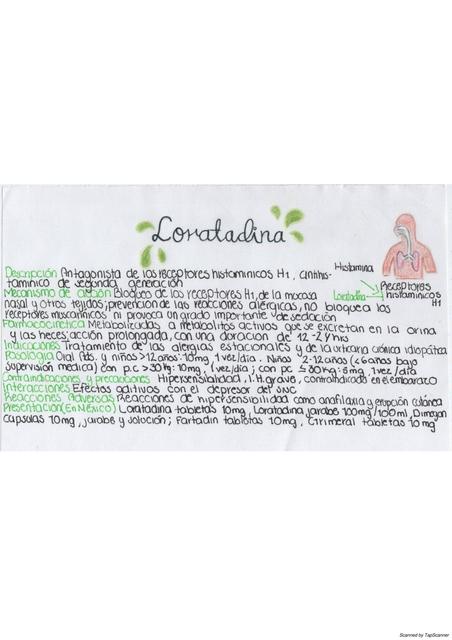 Loratadina
Histamina
Loratadina
Receptores
histaminicos
H1
Descripción Antagonista de los receptores histaminicos H1, antihis-
taminico de segunda generación
Mecanismo de acción Bloqueo de los receptores H1, de la mucosa
nasal y otros tejidos; prevención de las reacciones alérgicas, no bloquea los
receptores muscarínicos ni provoca un grado importante de sedación
Farmacocinetica Metabolizadas a metabolitos activos que se excretan en la orina
y las heces; acción prolongada, con una doracion de 12-24 hrs
Indicaciones Tratamiento de las alergias estacionales y de la urticaria crónica idiopática
Posologia Oral Ads. y niños >12 años: 10mg, 1 vez/dia. Niños 2-12 años (<6 años bajo
supervisión medica) con p.c >30 kg: 10mg, 1 vez/dia; con pc ≤ 30 kg: 5mg, 1 vez/dia
Contraindicaciones y precauciones Hipersensibilidad, I.H. grave, contraindicado en el embarazo
Interacciones Efectos aditivos con el depresor del SNC
Reacciones Adversas Reacciones de hipersensibilidad como anafilaxia y erupción cutánea
Presentación (En México) Loratadina tabletas 10mg, Loratadina jarabe 100mg/100ml, Dimegan
capsulas 10mg, jarabe y solución; Fartadin tabletas 10mg, tabletas 10mg
Scanned by TapScanner